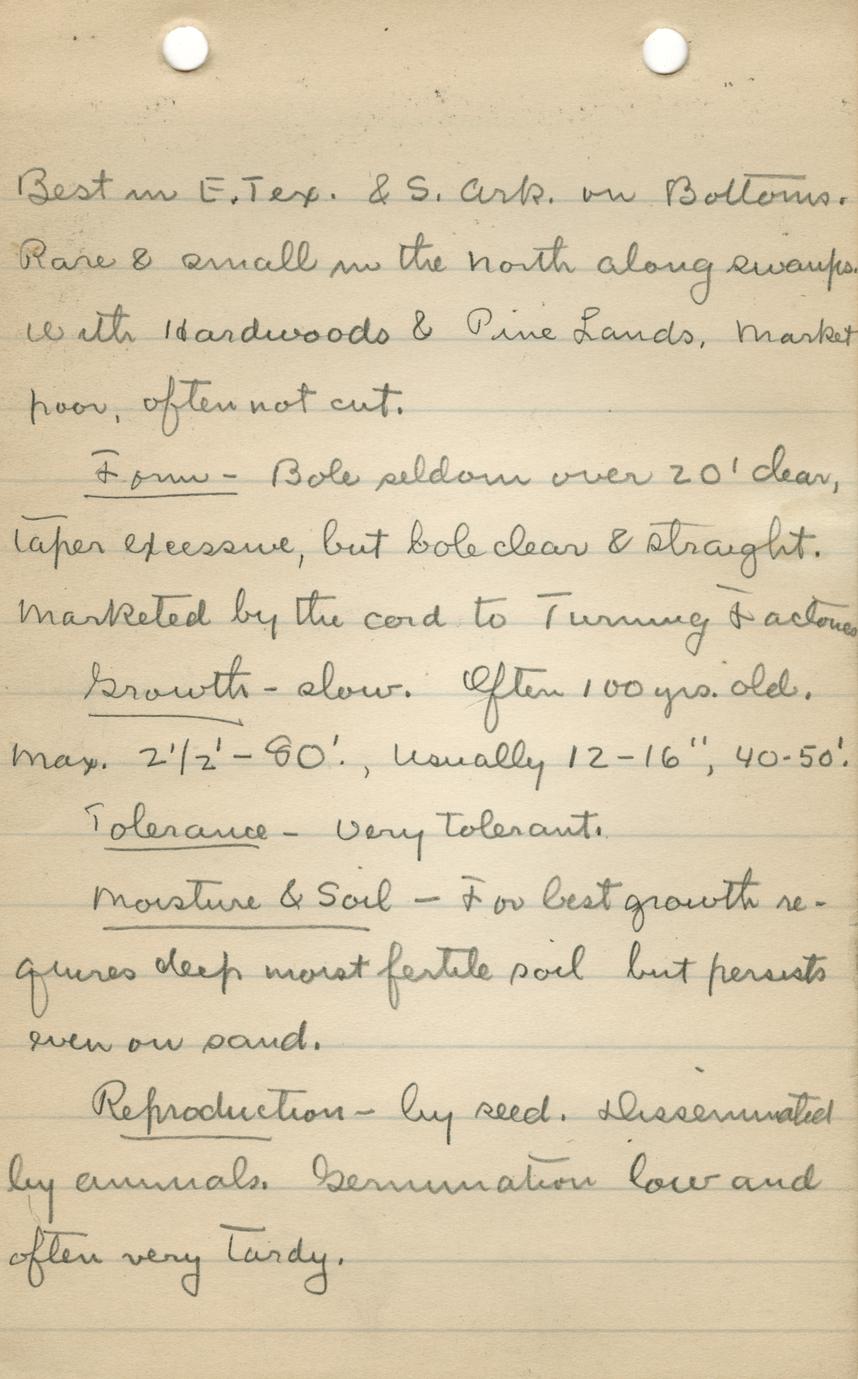 Best in E. Tex. & S. Ark. on Bottoms.
Rare & small in the north along swamps.
with Hardwoods & Pine Lands, Market
poor, often not cut.
Form - Bole seldom over 20' clear,
Taper excessive, but bole clear & straight.
Marketed by the cord to Turning Factories
Growth - slow. Often 100 yrs. old.
Max. 2 1/2' - 80'., Usually 12-16", 40-50'.
Tolerance - Very tolerant.
Moisture & Soil - For best growth re-
quires deep moist fertile soil but persists
even on sand.
Reproduction - by seed. Disseminated
by animals. Germination low and
often very Tardy.